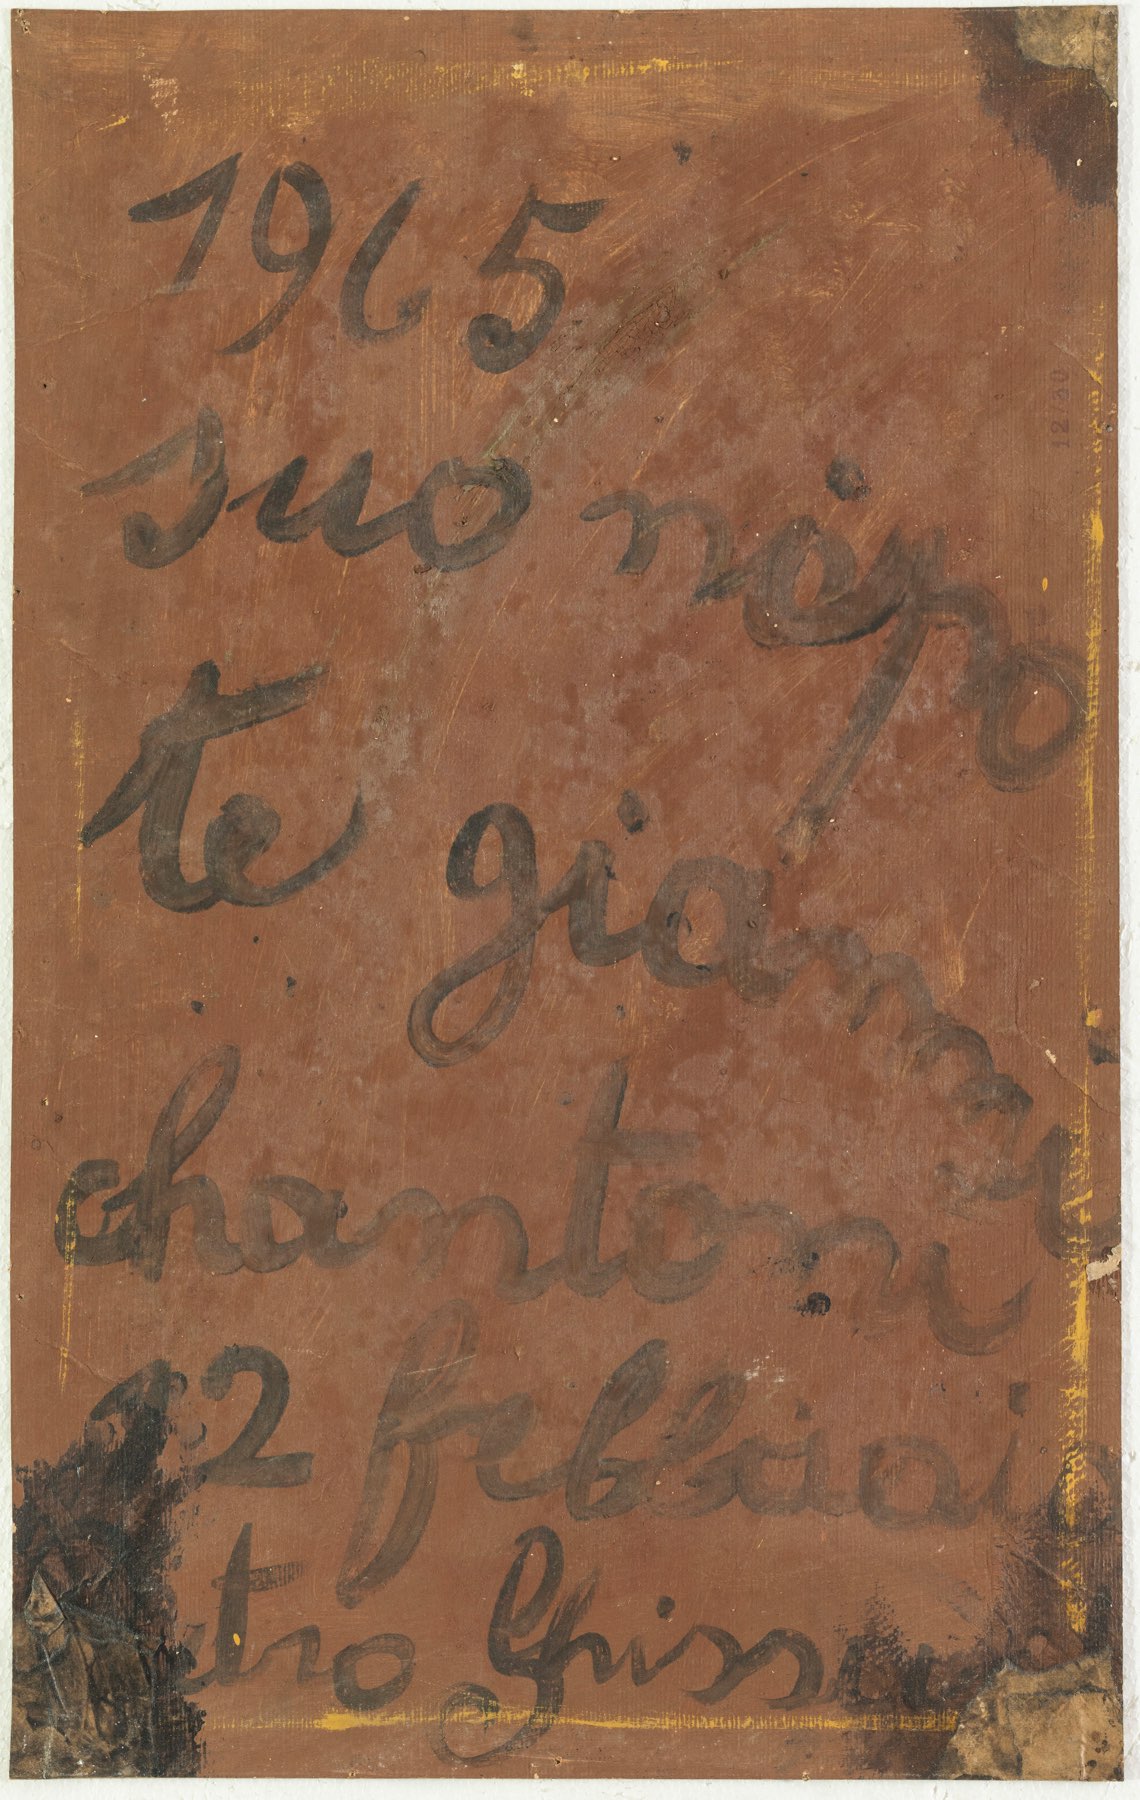 1965
suo nipo
te gianni
chantoni
12 febbraio
etro Ghissi
12/80